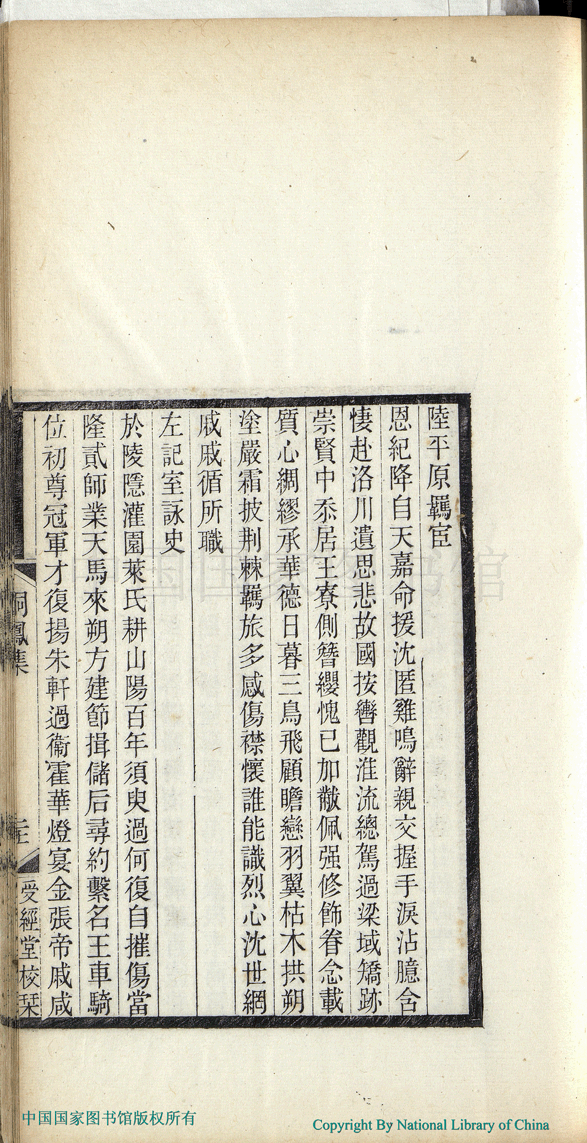 陸平原羈宦
恩紀降自天嘉命援沈匿雞鳴辭親交握手淚沾臆含
悽赴洛川遺思悲故國按轡觀淮流總駕過梁域矯跡
崇賢中忝居王寮側簪纓愧已加黻佩强修飾眷念載
質心綢繆承華德日暮三鳥飛顧瞻戀羽翼枯木拱朔
塗嚴霜披荆棘羈旅多感傷襟懷誰能識烈心沈世網
戚戚循所職
左記室詠史
於陵隱灌園萊氏耕山陽百年須臾過何復自摧傷當
隆貳師業天馬來朔方建節揖儲后尋約繫名王車騎
位初尊冠軍才復揚朱軒過衞霍華燈宴金張帝戚咸
桐鳳集
二十
受經堂校栞
中国国家图书馆
中国国家图书馆版权所有
Copyright By National Library of China